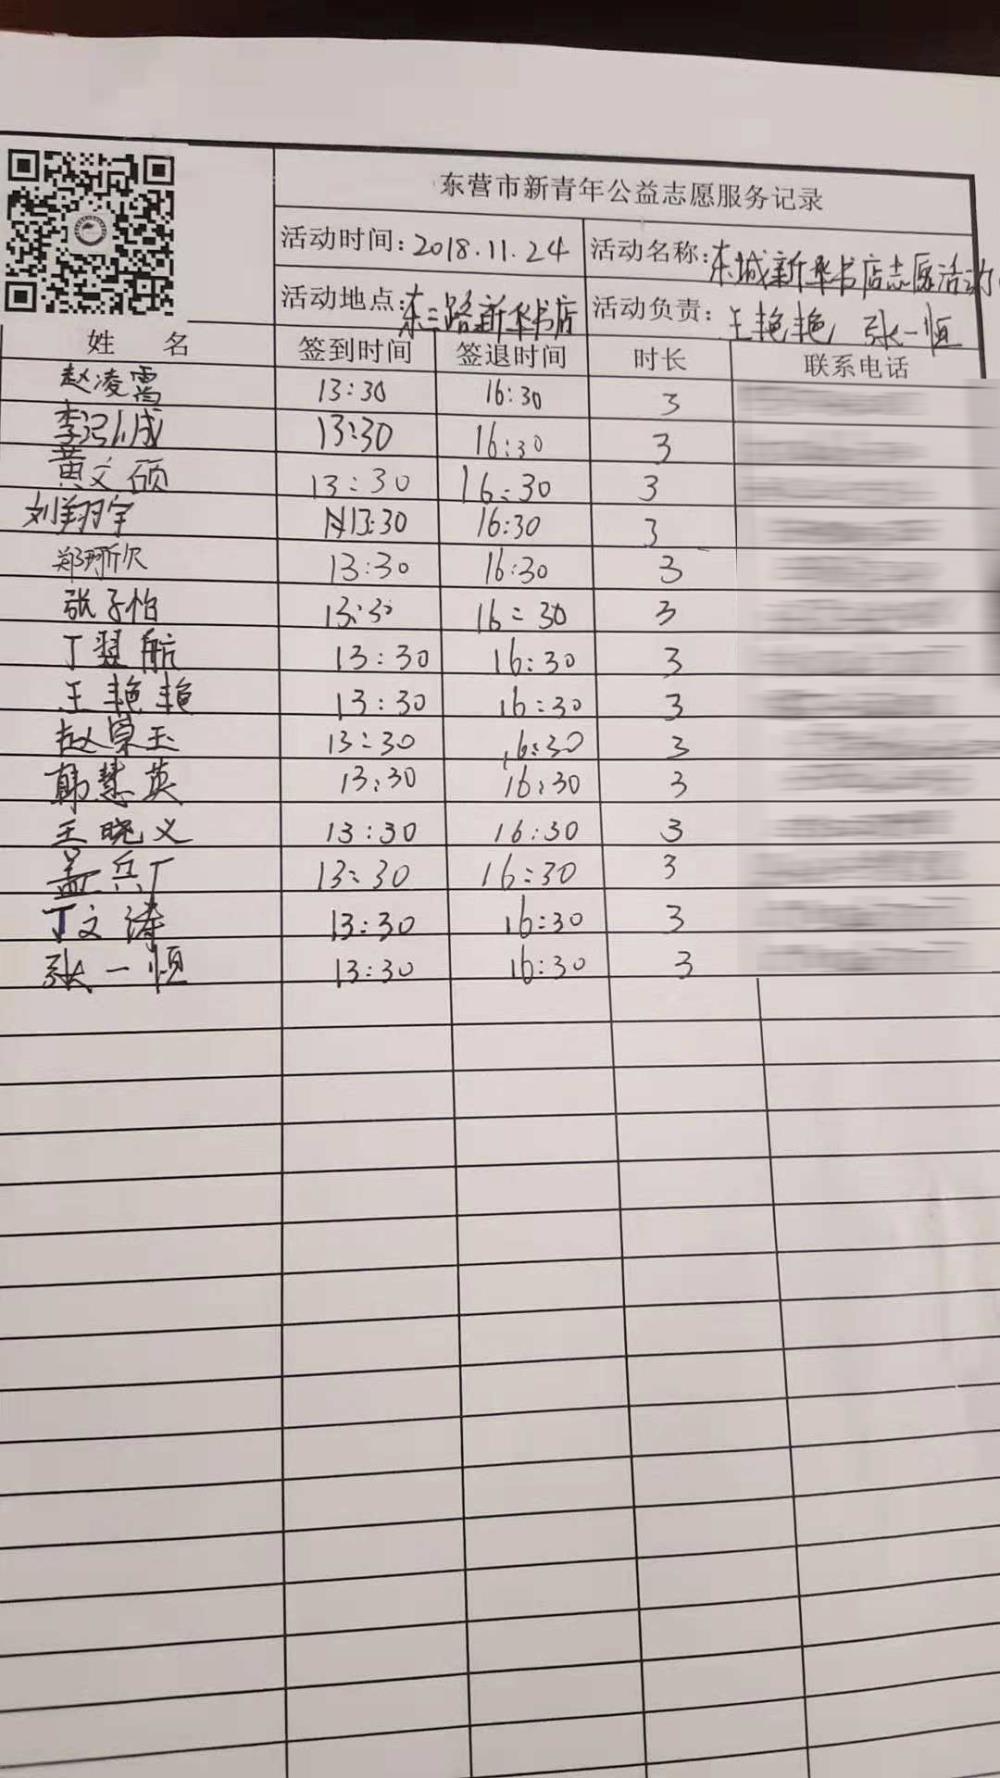 东营市新青年公益志愿服务记录
活动时间:2018.11.24 活动名称:东城新华书店志愿活动
活动地点:东三路新华书店 活动负责:王艳艳 张一恒
姓 名 签到时间 签退时间 时长 联系电话
赵凌霄 13:30 16:30 3
李 成 13:30 16:30 3
黄文硕 13:30 16:30 3
刘翔宇 13:30 16:30 3
郑珂欣 13:30 16:30 3
张子怡 13:30 16:30 3
丁翌航 13:30 16:30 3
王艳艳 13:30 16:30 3
赵杲玉 13:30 16:30 3
韩慧英 13:30 16:30 3
王晓义 13:30 16:30 3
盖兵厂 13:30 16:30 3
丁文涛 13:30 16:30 3
张一恒 13:30 16:30 3